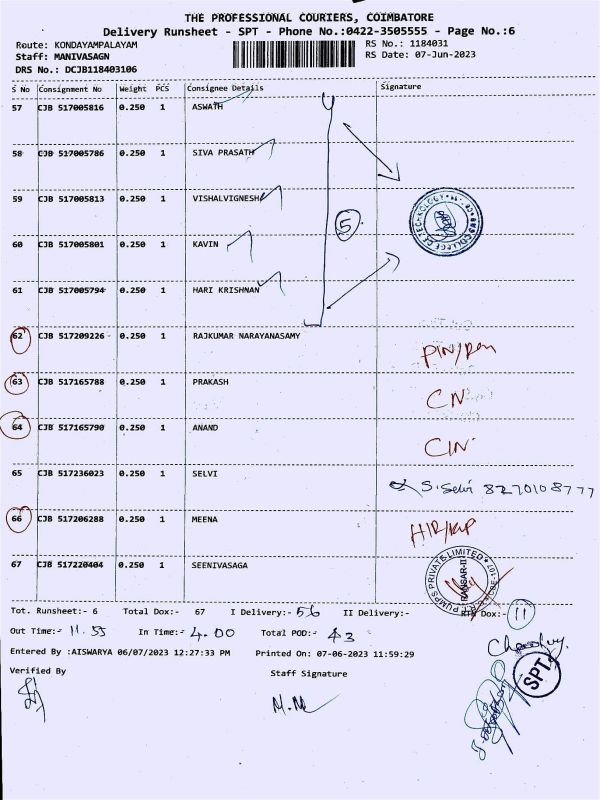 THE PROFESSIONAL COURIERS, COIMBATORE
Delivery Runsheet - SPT - Phone No.:0422-3505555 - Page No.:6
Route: KONDAYAMPALAYAM RS No.: 1184031
Staff: MANIVASAGN RS Date: 07-Jun-2023
DRS No.: DCJB118403106
S No Consignment No Weight PCS Consignee Details Signature
57 CJB 517005816 0.250 1 ASWATH
58 CJB 517005786 0.250 1 SIVA PRASATH
59 CJB 517005813 0.250 1 VISHALVIGNESH
5
60 CJB 517005801 0.250 1 KAVIN
61 CJB 517005794 0.250 1 HARI KRISHNAN
62 CJB 517209226 - 0.250 1 RAJKUMAR NARAYANASAMY
63 CJB 517165788 0.250 1 PRAKASH CN
64 CJB 517165790 0.250 1 ANAND CIN
65 CJB 517236023 0.250 1 SELVI S. Selvi 8270108777
66 CJB 517206288 0.250 1 MEENA
67 CJB 517220404 0.250 1 SEENIVASAGA
PUMPS PRIVATE LIMITED
Tot. Runsheet:- 6 Total Dox:- 67 I Delivery:- 56 II Delivery:- RTN Dox:- 11
Out Time:- 11.55 In Time:- 4.00 Total POD:- 43
Entered By :AISWARYA 06/07/2023 12:27:33 PM Printed On: 07-06-2023 11:59:29
Verified By Staff Signature
SPT
M.M